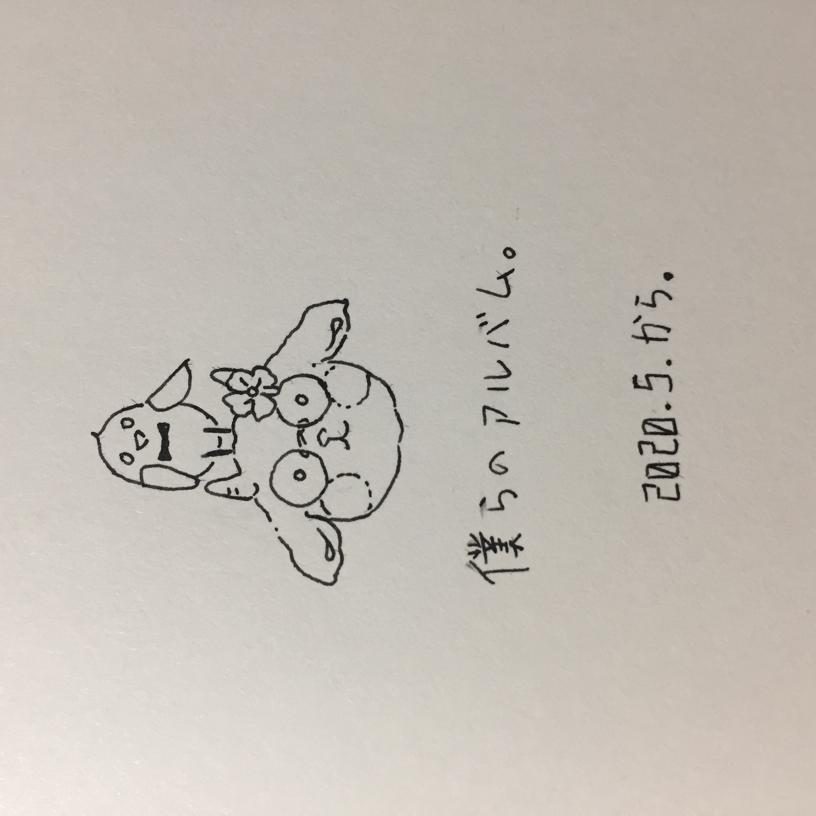 僕らのアルバム。
2020.5.から.